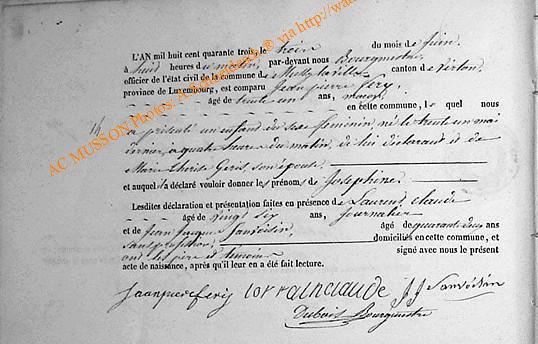 L'AN mil huit cent quarante trois, le trois du mois de juin,
à huit heures du matin, par-devant nous Bourgmestre,
officier de l'état civil de la commune de Mussy la ville canton de Virton,
province de Luxembourg, est comparu Jean pierre Fery,
âgé de trente un ans, maçon,
en cette commune, lequel nous
14
a présenté un enfant du sexe féminin né le trente un mai
dernier, a quatre heures du matin, de lui déclarant et de
Marie Son épouse
et auquel a déclaré vouloir donner les prénoms de Josephine
Lesdites déclaration et présentation faites en présence de Laurent Claude
âgé de vingt six ans, journalier
et de Jean Jacques Sanvoisin, âgé de quarante deux ans
sans profession, domiciliés en cette commune, et
ont les père et témoins signé avec nous le présent
acte de naissance, après qu'il leur en a été fait lecture.
Jean pier ferij lorrain claude JJ Sanvoisin
Dubois Bourgmestre
AC MUSSON Photos: A via http://wa